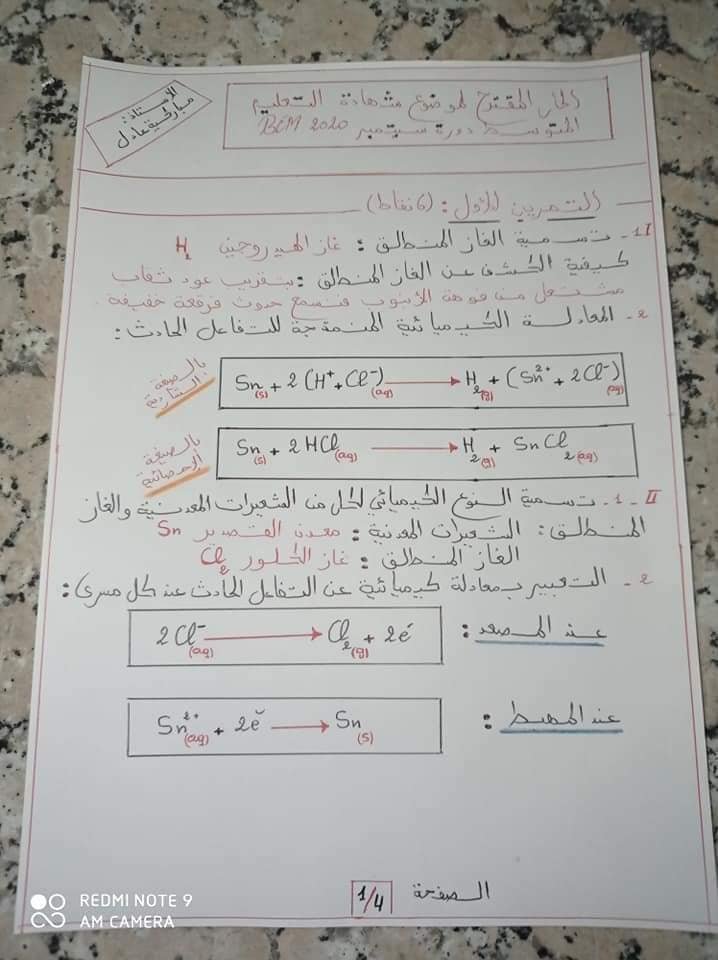 الأستاذ:
مباركية عادل
الحل المقترح لموضوع شهادة التعليم
المتوسط دورة سبتمبر BEM 2020
التمرين الأول: (6 نقاط)
I-1- تسمية الغاز المنطلق: غاز الهيدروجين H₂
كيفية الكشف عن الغاز المنطلق: بتقريب عود ثقاب
مشتعل من فوهة الأنبوب فنسمع حدوث فرقعة خفيفة.
2- المعادلة الكيميائية المنمذجة للتفاعل الحادث:
بالصيغة الشاردية
Sn(s) + 2(H⁺ + Cl⁻)(aq) → H₂(g) + (Sn²⁺ + 2Cl⁻)(aq)
بالصيغة الإحصائية
Sn(s) + 2HCl(aq) → H₂(g) + SnCl₂(aq)
II-1- تسمية النوع الكيميائي لكل من الشعيرات المعدنية والغاز
المنطلق: الشعيرات المعدنية: معدن القصدير Sn
الغاز المنطلق: غاز الكلور Cl₂
2- التعبير بمعادلة كيميائية عن التفاعل الحادث عند كل مسرى:
عند المصعد: 2Cl⁻(aq) → Cl₂(g) + 2e⁻
عند المهبط: Sn²⁺(aq) + 2e⁻ → Sn(s)
الصفحة 1/4
REDMI NOTE 9
AM CAMERA